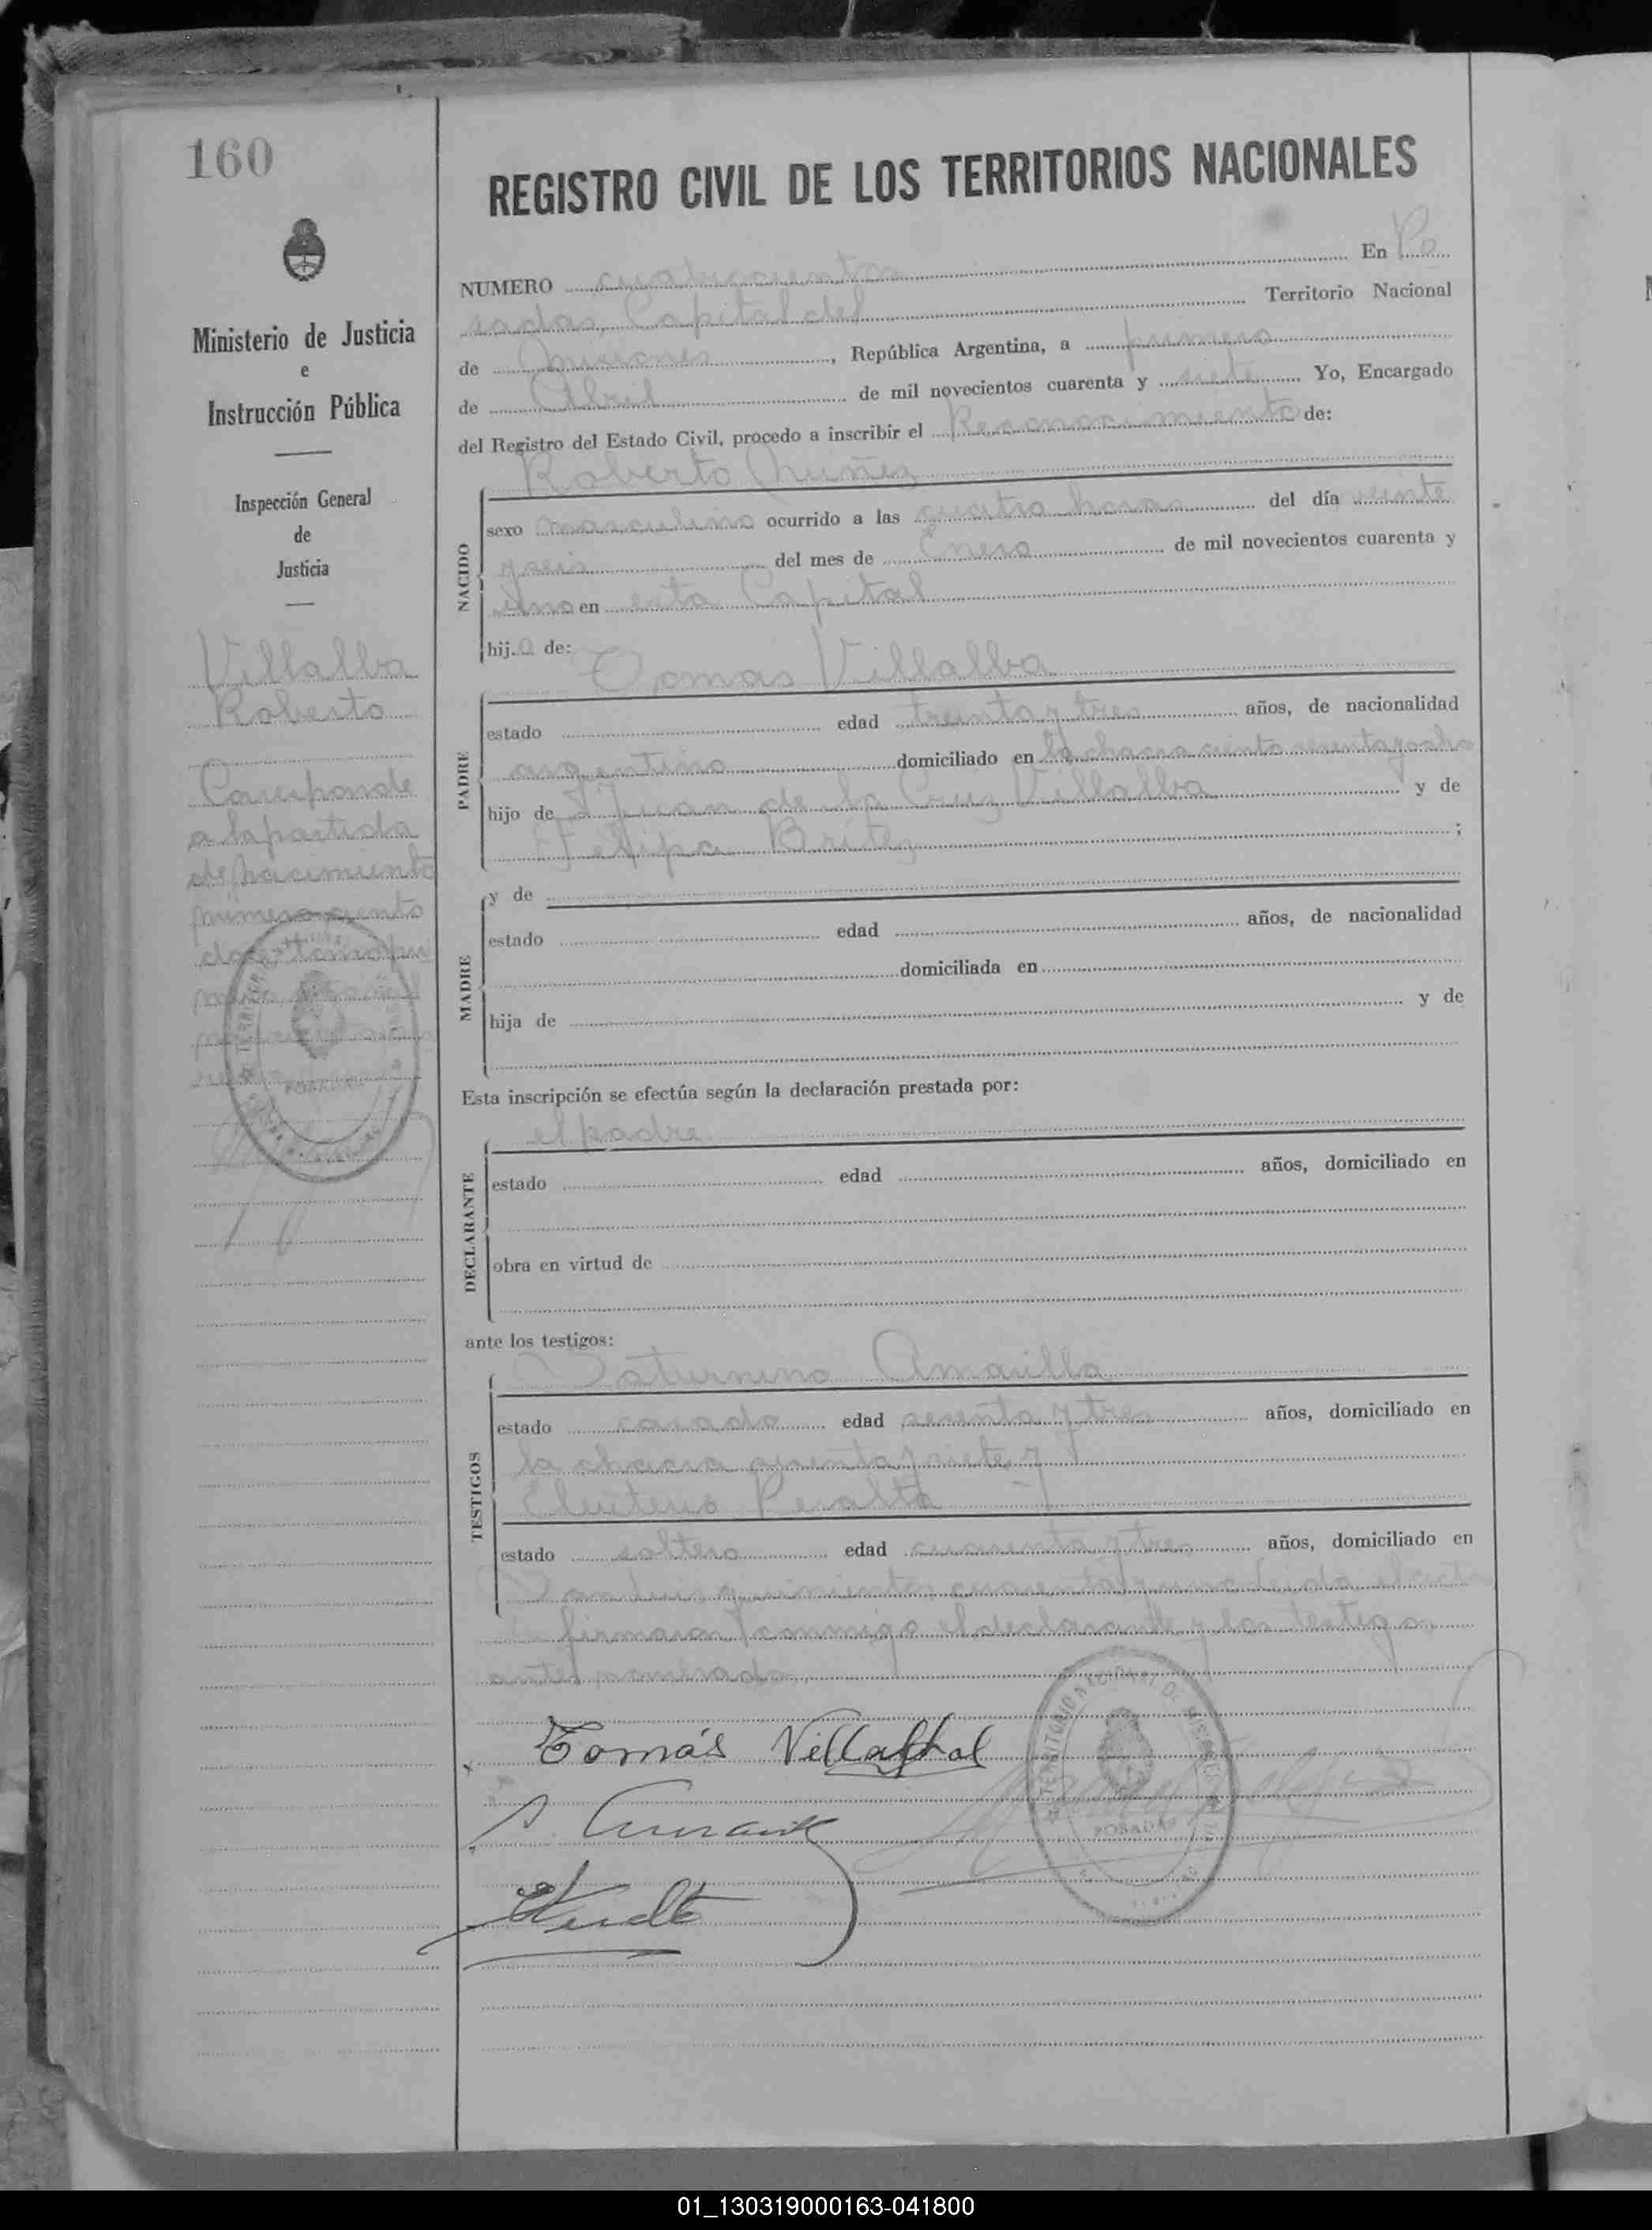 160
Ministerio de Justicia
e
Instrucción Pública
Inspección General
de
Justicia
Villalba
Roberto
Corresponde
a la partida
de nacimiento
número ciento
POSADAS
REGISTRO CIVIL DE LOS TERRITORIOS NACIONALES
NUMERO cuatrocientos En Po
sadas, Capital del Territorio Nacional
de Misiones, República Argentina, a primero
de Abril de mil novecientos cuarenta y siete Yo, Encargado
del Registro del Estado Civil, procedo a inscribir el Reconocimiento de:
Roberto Nuñez
NACIDO
sexo masculino ocurrido a las cuatro horas del día veinte
y seis del mes de Enero de mil novecientos cuarenta y
uno en esta Capital
hijo de:
Tomás Villalba
PADRE
estado edad treinta y tres años, de nacionalidad
argentino domiciliado en la chacra ciento
hijo de Juan de la Cruz Villalba y de
Felipa Britez ;
MADRE
y de
estado edad años, de nacionalidad
domiciliada en
hija de y de
Esta inscripción se efectúa según la declaración prestada por:
el padre
DECLARANTE
estado edad años, domiciliado en
obra en virtud de
ante los testigos:
Saturnino Amarilla
TESTIGOS
estado casado edad sesenta y tres años, domiciliado en
la chacra y
Eleuterio Peralta
estado soltero edad cuarenta y tres años, domiciliado en
quinientos cuarenta y
firmaron conmigo el declarante y los testigos
antes nombrados
Tomás Villalbal
TERRITORIO NACIONAL DE MISIONES
POSADAS
01_130319000163-041800